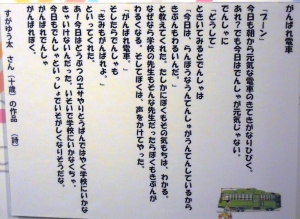 がんばれ電車
今日も朝から元気な電車のきてきがなりひびく。
あれ？でも今日はでんしゃが元気じゃない。
「プーン」
でんしゃに
「どうして」
ときいてみるとでんしゃは
「今日は、らんぼうなうんてんしゅがうんてんしているから
きぶんわるいんだ。」
と教えてくれた。たしかにぼくもその気もちは、わかる。
なぜなら学校の先生もそんな先生だったらぼくもきぶんが
わるくなる。そしてぼくは、声をかけてやった。
「がんばれ電車。」
そしたらでんしゃも
「きみもがんばれよ。」
といってくれた。
あ！今日はどうぶつのエサやりとうばんではやく学校にいかな
きゃいけないんだった。いそいで学校にいかなくちゃ。
今日もでんしゃといっしょでいそがしくなりそうだな。
がんばれでんしゃ。
がんばれぼく。
すがゆう太 さん（十歳）の作品 （詩）